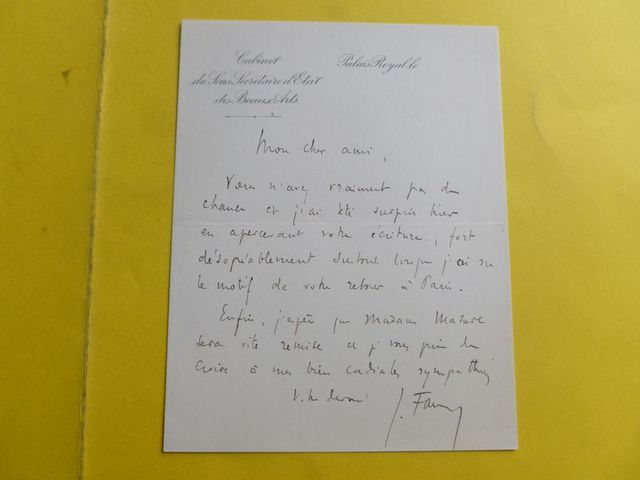 Cabinet
du Sous Secrétaire d'Etat
des Beaux Arts.
Palais Royal, le
Mon cher ami,
Vous n'avez vraiment pas de
chance et j'ai été surpris hier
en apercevant votre écriture, fort
désagréablement surtout lorsque j'ai su
le motif de votre retour à Paris.
Enfin, j'espère que Madame
sera vite remise et je vous prie de
croire à mes bien cordiales sympathies
V. tr dévoué
J.